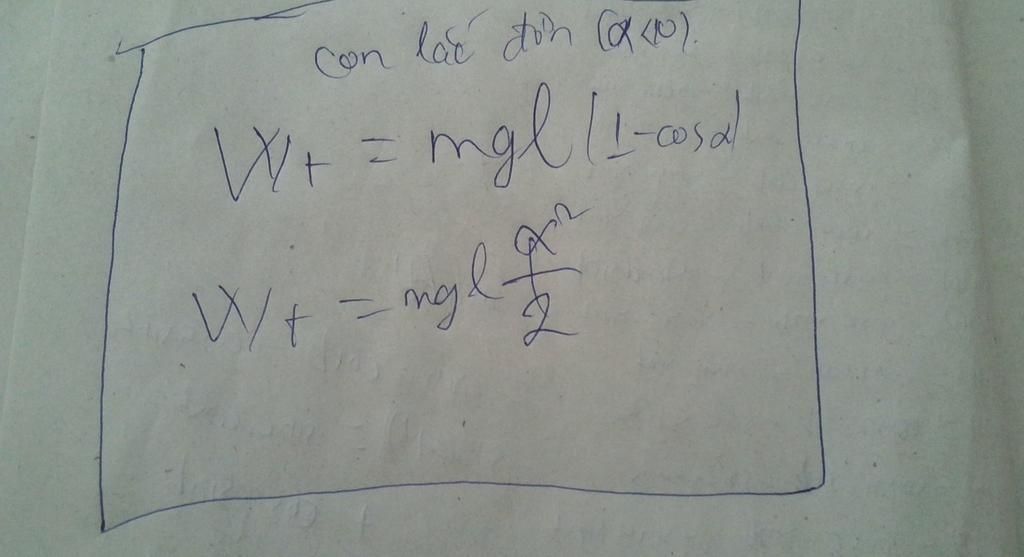 con lắc đơn (α<10).
Wt = mgl (1-cosα)
Wt = mgl α²/2